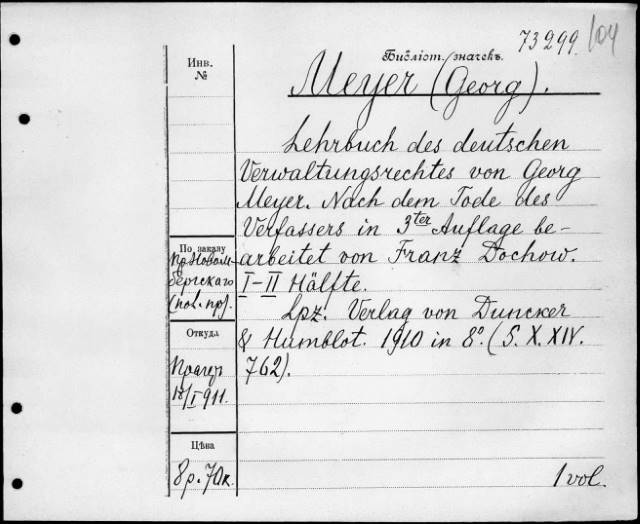 73299/04
Инв.
№
Библіот. значекъ.
Meyer (Georg).
Lehrbuch des deutschen
Verwaltungsrechtes von Georg
Meyer. Nach dem Tode des
Verfassers in 3ter Auflage be-
arbeitet von Franz Dochow.
I-II Hälfte.
Lpz. Verlag von Duncker
& Humblot. 1910 in 8º. (S. X. XIV.
762).
По заказу
пр. Новом-
бергскаго
(пол. пр).
Откуда
Прагеръ
/I 911.
Цѣна
8 р. 70 к.
1 vol.